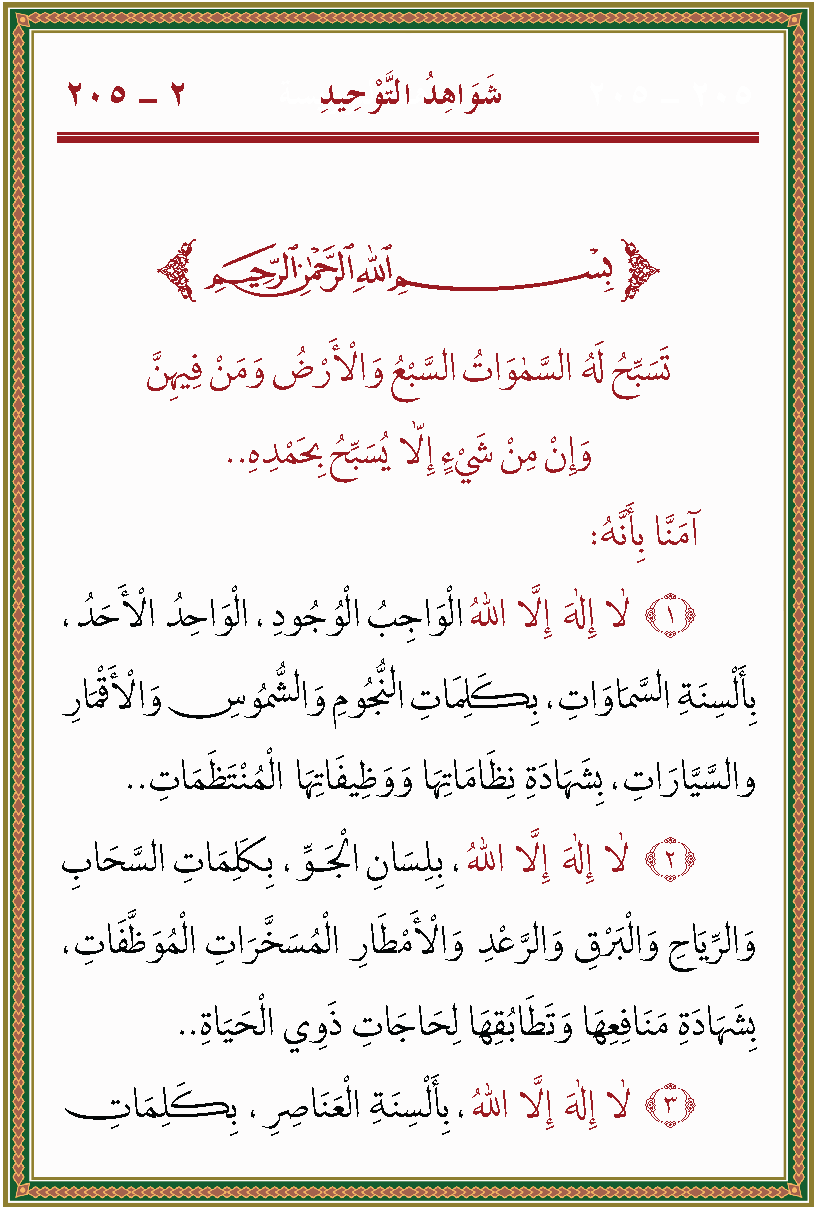 شَوَاهِدُ التَّوْحِيدِ ٢ – ٢٠٥
بِسْمِ اللهِ الرَّحْمٰنِ الرَّحِيمِ
تَسَبِّحُ لَهُ السَّمٰوَاتُ السَّبْعُ وَالْأَرْضُ وَمَنْ فِيهِنَّ
وَإِنْ مِنْ شَيْءٍ إِلَّا يُسَبِّحُ بِحَمْدِهِ..
آمَنَّا بِأَنَّهُ:
﴿١﴾ لٰا إِلٰهَ إِلَّا اللهُ الْوَاجِبُ الْوُجُودِ، الْوَاحِدُ الْأَحَدُ،
بِأَلْسِنَةِ السَّمَاوَاتِ، بِكَلِمَاتِ النُّجُومِ وَالشُّمُوسِ وَالْأَقْمَارِ
والسَّيَّارَاتِ، بِشَهَادَةِ نِظَامَاتِهَا وَوَظِيفَاتِهَا الْمُنْتَظَمَاتِ..
﴿٢﴾ لٰا إِلٰهَ إِلَّا اللهُ، بِلِسَانِ الْجَوِّ، بِكَلِمَاتِ السَّحَابِ
وَالرِّيَاحِ وَالْبَرْقِ وَالرَّعْدِ وَالْأَمْطَارِ الْمُسَخَّرَاتِ الْمُوَظَّفَاتِ،
بِشَهَادَةِ مَنَافِعِهَا وَتَطَابُقِهَا لِحَاجَاتِ ذَوِي الْحَيَاةِ..
﴿٣﴾ لٰا إِلٰهَ إِلَّا اللهُ، بِأَلْسِنَةِ الْعَنَاصِرِ، بِكَلِمَاتِ